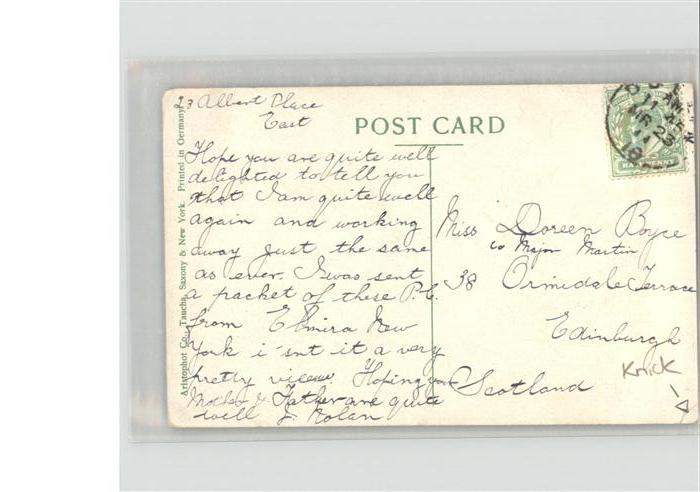 23 Albert Place
East
POST CARD
Hope you are quite well
delighted to tell you
that I am quite well
again and working
away just the same
as ever. I was sent
a packet of these P.C.
from Elmira New
York i'snt it a very
pretty view. Hoping your
Mother & Father are quite
well J. Nolan
Miss Doreen Boyce
c/o Major Martin
38 Ormidale Terrace
Edinburgh
Scotland
Knick
Aristophot Co., Taucha, Saxony & New York. Printed in Germany.
11 AM
MR 23
10